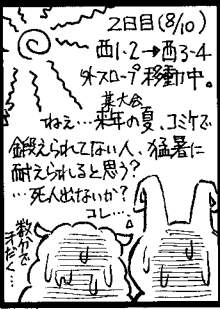 2日目(8/10)
西1・2→西3-4
外スロープ移動中。
ねぇ…来年の夏、コミケで
鍛えられてない人、猛暑に
耐えられると思う?
…死人出ないか?
コレ…。
数分で
汗だく…